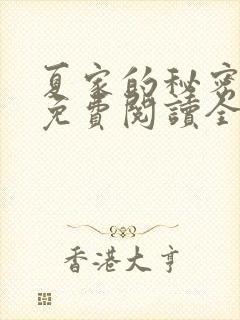 夏家的秘密
免費閱讀全
香港大亨